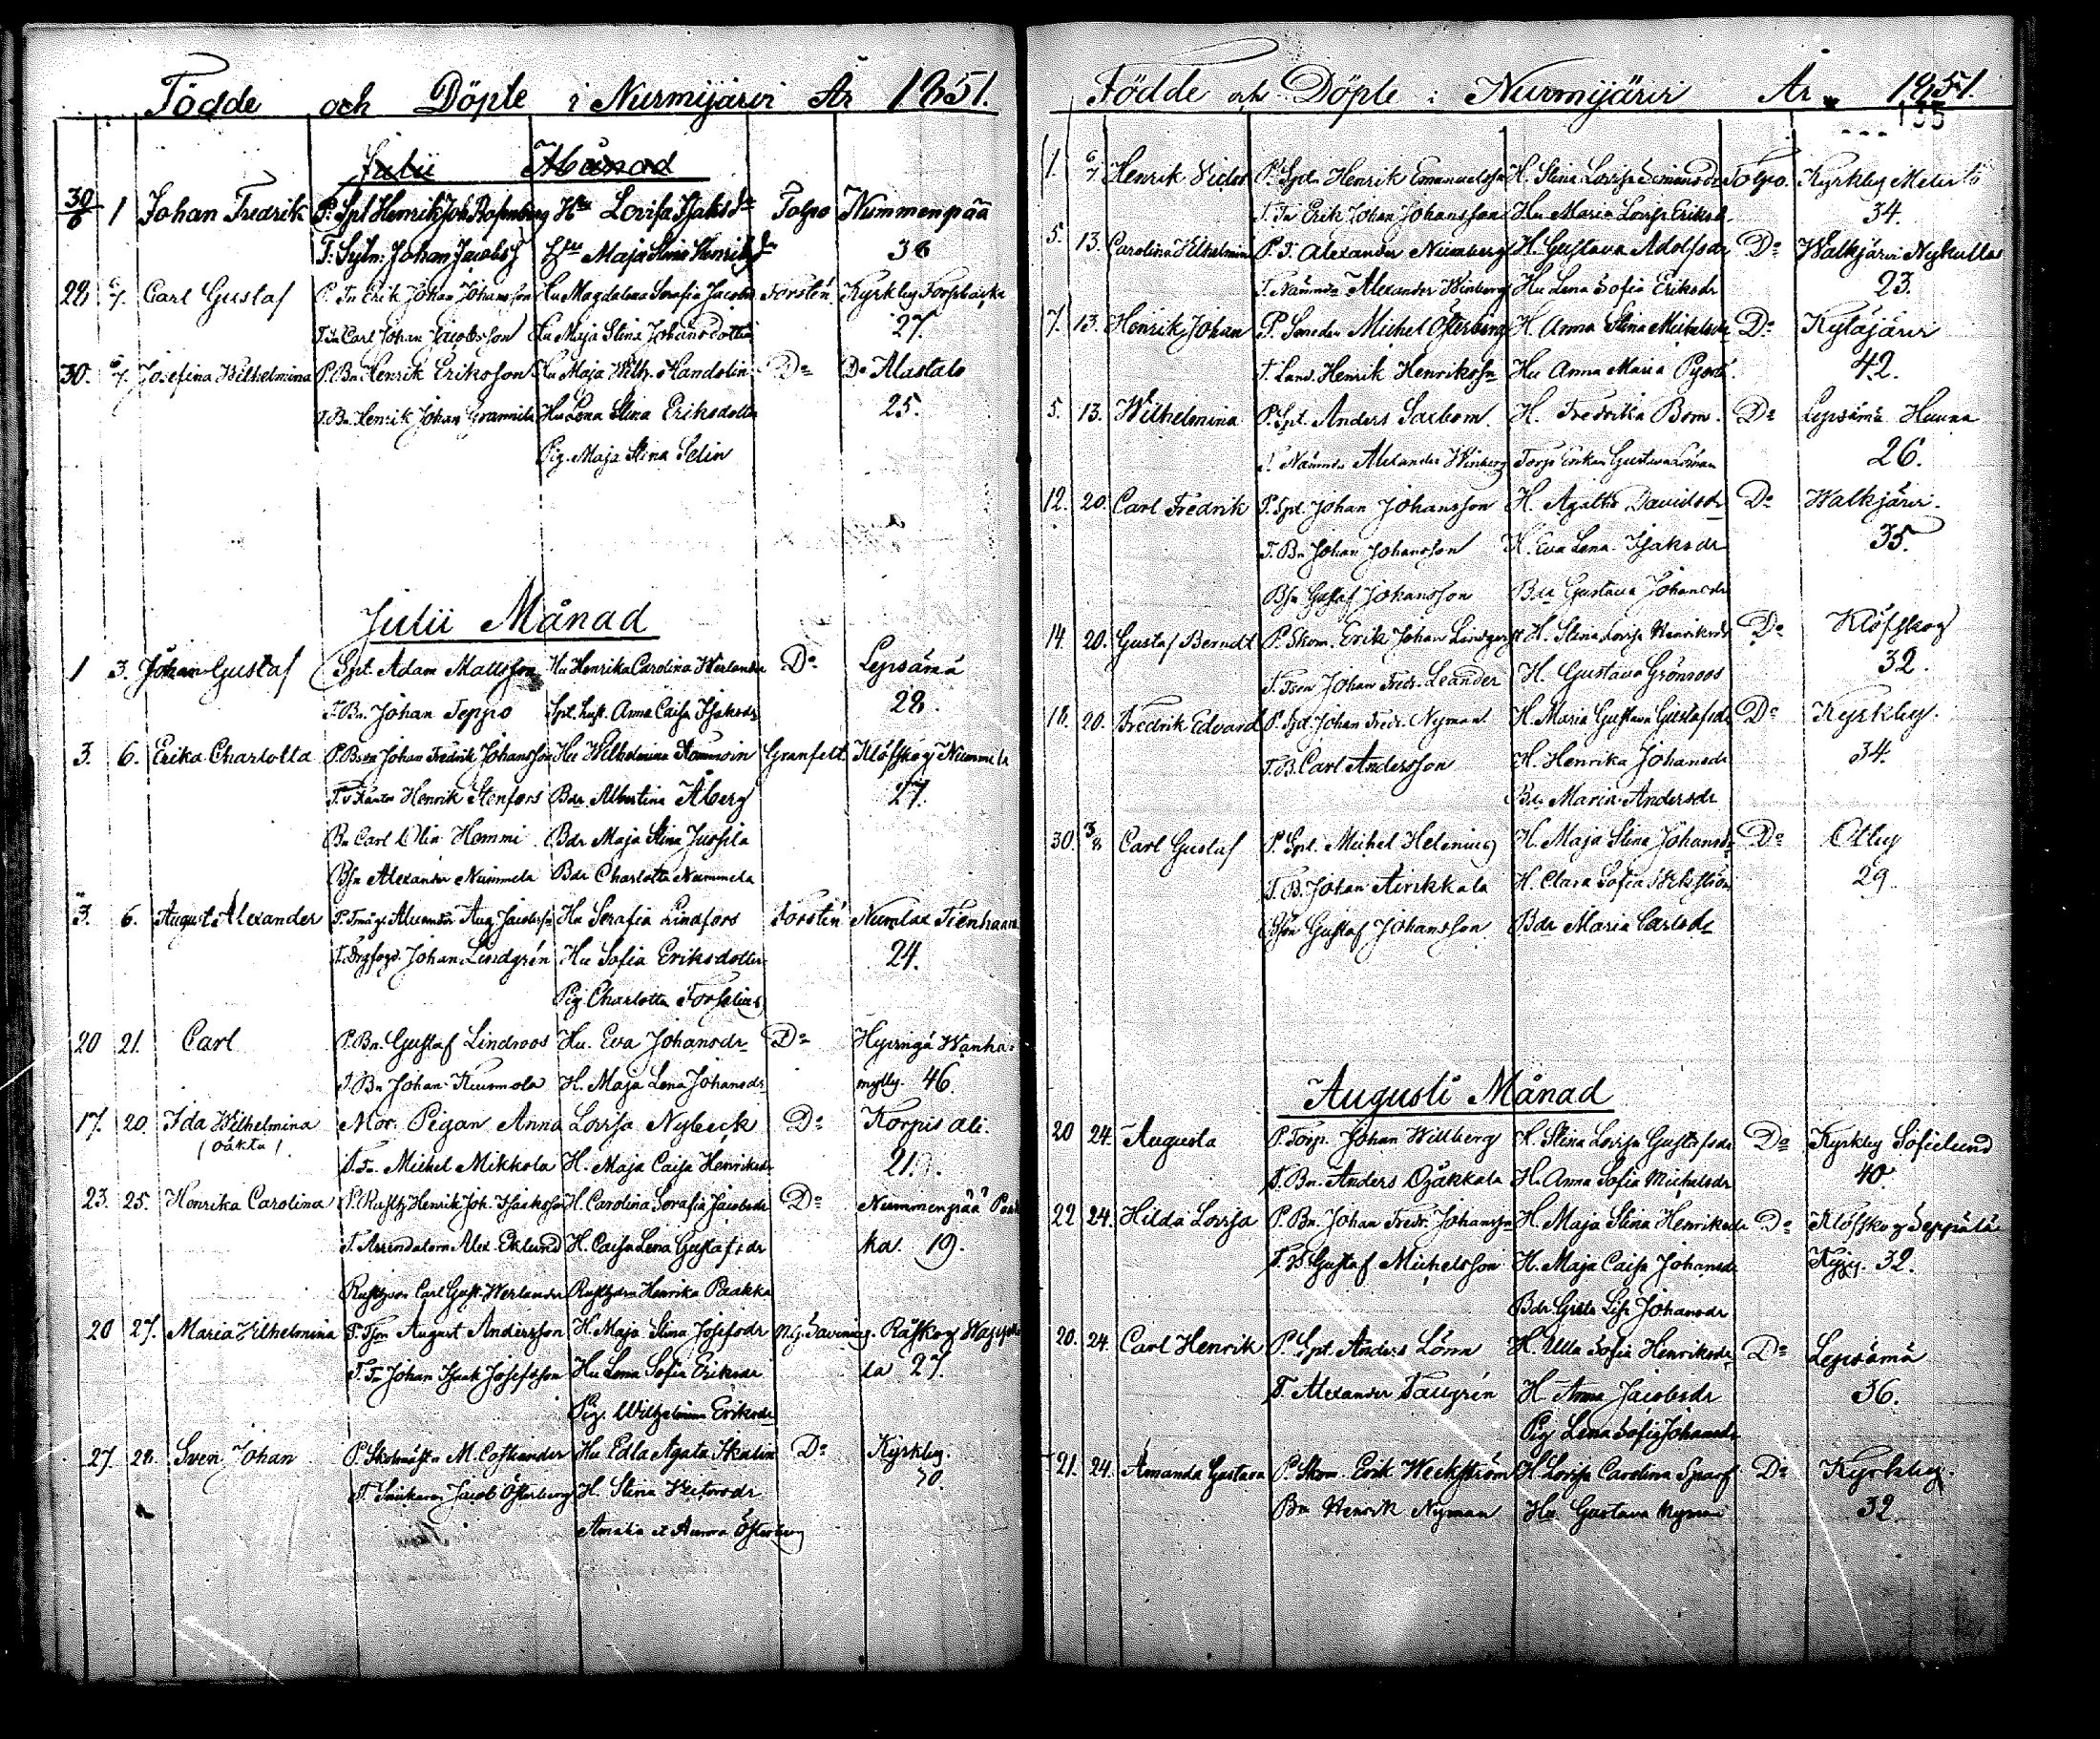 Födde och Döpte i Nurmijärvi År 1851.
Julii Månad
30/6 1 Johan Fredrik P. Spt Henrik Joh. Rosenberg Hu Lovisa Isaksdr Tolpo Nummenpää
T. Sytn. Johan Jacobss Hu Maja Stina Henriksdr 36
28 6/7 Carl Gustaf P. Tn Erik Johan Johansson Hu Magdalena Serafia Jacobsdr Forstén Kyrkby Forssbacka
T. Bn Carl Johan Jacobsson Hu Maja Stina Johansdotter 27.
30. 6/7. Josefina Wilhelmina P. Bn. Henrik Eriksson Hu Maja Wilh. Handolin Do Do Alastalo
T. Bn. Henrik Johan Grannila Hu Lena Stina Eriksdotter 25.
Pig. Maja Stina Selin
Julii Månad
1 3. Johan Gustaf Spt. Adam Mattsson Hu Henrika Carolina Werlander Do Lepsämä
T. Bn. Johan Teppo Spt. hust. Anna Caisa Isaksdr 28.
3. 6. Erika Charlotta P. Bson Johan Fredrik Johansson Hu Wilhelmina Granfelt Klöfskog Nummela
T. Henrik Stenfors Bdr. Albertina Åberg 27.
Bn Carl Hemmi Bdr Maja Stina Jussila
Bsn Alexander Nummela Bdr Charlotta Nummela
3. 6. August Alexander P. Alexander Aug. Jacobssn Hu Serafia Lindfors Forstén Numlax Tienhaara
T. Johan Lindgrén Hu Sofia Eriksdotter 24.
Pig. Charlotta Forselius
20 21. Carl P. Bn. Gustaf Lindroos Hu. Eva Johansdr Do Hyvingä Wanha-
T. Bn Johan Kuumola H. Maja Lena Johansdr mylly. 46.
17. 20. Ida Wilhelmina Mor. Pigan Anna Lovisa Nybeck Do Korpis ali.
(oäkta) T. Tn. Michel Mikkola H. Maja Caisa Henriksdr 21.
23. 25. Henrika Carolina P. Rusth Henrik Joh. Isaksson H. Carolina Serafia Jacobsdr Do Nummenpää Paak
T. Arrendatorn Alex. Eklund H. Caisa Lena Gustafsdr ka. 19.
Rusthson Carl Gust. Werlander Rusthdrn Henrika Paakka
20 27. Maria Wilhelmina P. Tson August Andersson H. Maja Stina Josefsdr N.G. Savenius. Råskog
T. Tn Johan Isaak Josefsson Hu Lena Sofia Eriksdr la 27.
Pig. Wilhelmina Eriksdr
27. 28. Sven Johan P. Skolmästn M. Costiander Hu Edla Agata Do Kyrkby.
T. Snickaren Jacob Österberg H. Stina 30.
Amalia et Aurora Österberg
Födde och Döpte i Nurmijärvi År 1851.
135
1. 6/7 Henrik Victor P. Sptn Henrik Emanuelssn H. Stina Lovisa Simonsdr Tolpo. Kyrkby
T. Tn Erik Johan Johansson Hu Maria Lovisa Eriksdr 34.
5. 13. Carolina Wilhelmina P. T. Alexander Nurmberg H. Gustava Adolfsdr Do Walkjärvi Nykulla
T. Nämndn Alexander Winberg Hu Lena Sofia Eriksdr 23.
7. 13. Henrik Johan P. Smeden Michel Österberg H. Anna Stina Michelsdr Do Kytäjärvi
T. Land. Henrik Henrikssn Hu Anna Maria 42.
5. 13. Wilhelmina P. Spt. Anders Saxbom. H. Fredrika Bom. Do Lepsämä Hanna
T. Nämndn Alexander Winberg Torp. Enkan Gustava 26.
12. 20. Carl Fredrik P. Spt. Johan Johansson H. Agatha Davidsdr Do Walkjärvi.
T. Bn Johan Johansson H. Eva Lena Isaksdr 35.
Bsn Gustaf Johansson Bdr Gustava Johansdr
14. 20. Gustaf Berndt P. Skom. Erik Johan Lindqvist H. Stina Lovisa Henriksdr Do Klöfskog
T. Tson Johan Fredr. Leander H. Gustava Grönroos 32.
16. 20. Fredrik Edvard P. Spt. Johan Fredr. Nyman H. Maria Gustava Gustafsdr Do Kyrkby.
T. B. Carl Andersson H. Henrika Johansdr 34.
Bdr Maria Andersdr
30. 3/8 Carl Gustaf P. Spt. Michel Helenius H. Maja Stina Johansdr Do Otby
T. B. Johan Airikkala H. Clara Sofia 29
Bson Gustaf Johansson Bdr Maria Carlsdr
Augusti Månad
20 24. Augusta P. Torp. Johan Willberg H. Stina Lovisa Gustafsdr Do Kyrkby Sofielund
T. Bn. Anders Ojakkala H. Anna Sofia Michelsdr 40.
22. 24. Hilda Lovisa P. Bn. Johan Fredr. Johanssn H. Maja Stina Henriksdr Do Klöfskog Seppälä
T. B. Gustaf Michelsson H. Maja Caisa Johansdr 32.
Bdr Greta Lisa Johansdr
20. 24. Carl Henrik P. Spt. Anders Lönn H. Ulla Sofia Henriksdr Do Lepsämä
T. Alexander Taugrén H. Anna Jacobsdr 36.
Pig Lena Sofia Johansdr
21. 24. Amanda Gustava P. Skom. Erik Weckström H. Lovisa Carolina Sparf Do Kyrkby.
Bn Henrik Nyman Hu Gustava Nyman 32.